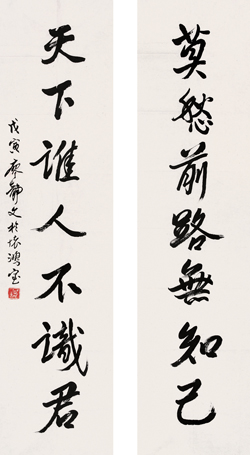 莫愁前路無知己
天下誰人不識君
戊寅廖靜文於悲鴻室